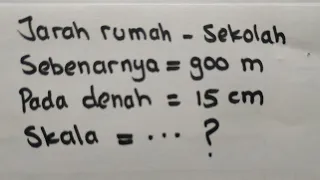 Jarah rumah - Sekolah
Sebenarnya = 900 m
Pada denah = 15 cm
Skala = ... ?